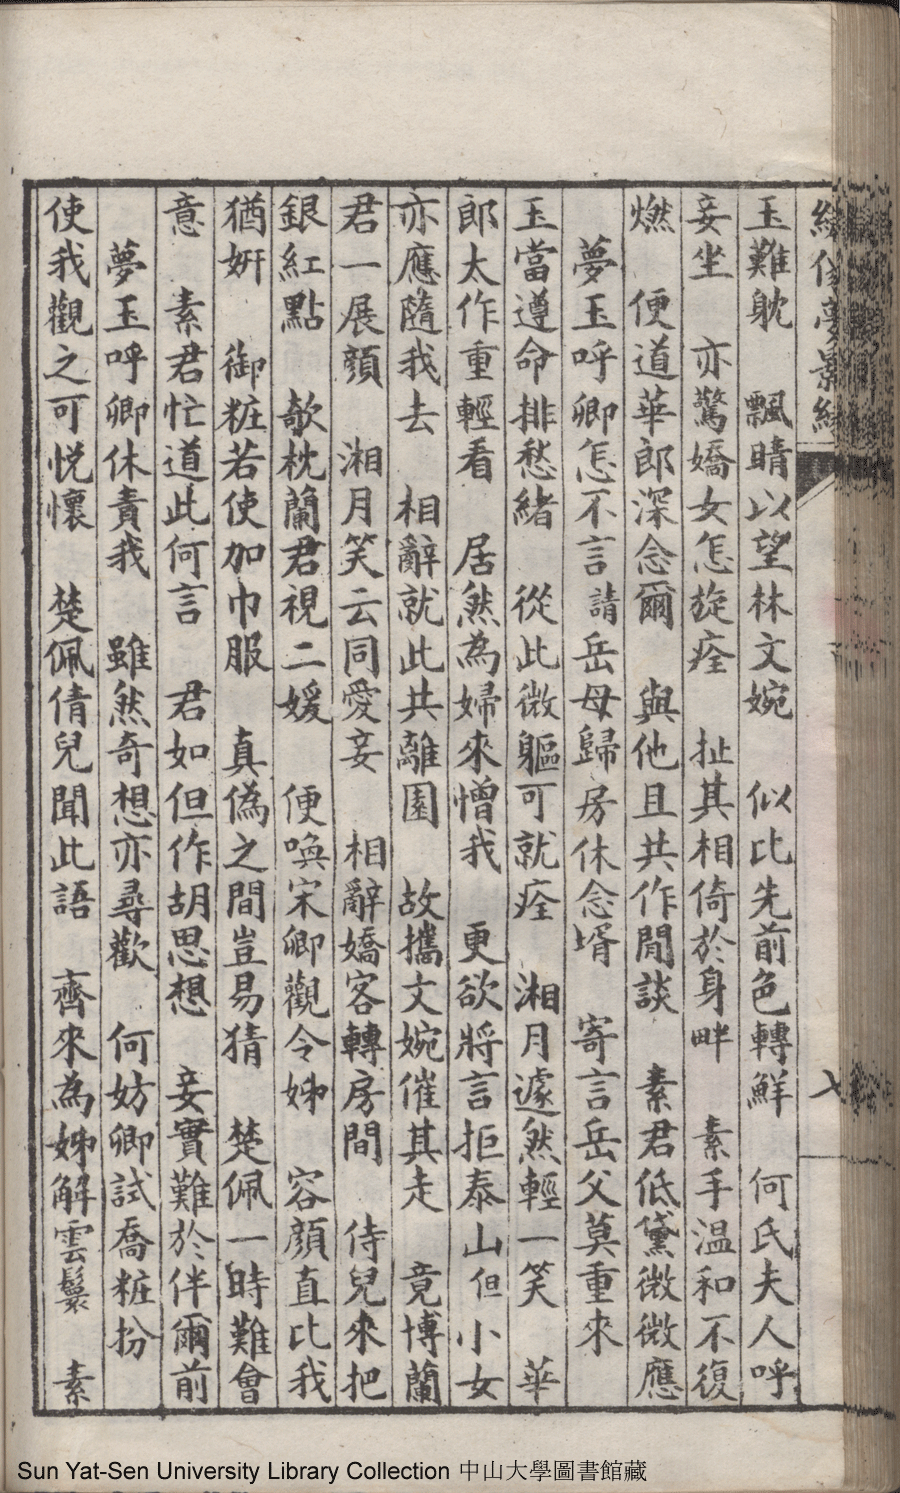 玉難躭　飄睛以望林文婉　似比先前色轉鮮　何氏夫人呼
妾坐　亦驚嬌女怎旋痊　扯其相倚於身畔　素手温和不復
燃　便道華郎深念爾　與他且共作閒談　素君低黛微微應
夢玉呼卿怎不言　請岳母歸房休念壻　寄言岳父莫重來
玉當遵命排愁緒　從此微軀可就痊　湘月遽然輕一笑　華
郎太作重輕看　居然為婦來憎我　更欲將言拒泰山　但小女
亦應隨我去　相辭就此共離園　故攜文婉催其走　竟博蘭
君一展顔　湘月笑云同愛妾　相辭嬌客轉房間　侍兒來把
銀紅點　欹枕蘭君視二媛　便喚宋卿觀令姊　容顔直比我
猶妍　御粧若使加巾服　真僞之間豈易猜　楚佩一時難會
意　素君忙道此何言　君如但作胡思想　妾實難於伴爾前
夢玉呼卿休責我　雖然奇想亦尋歡　何妨卿試喬粧扮
使我觀之可悦懷　楚佩倩兒聞此語　齊來為姊解雲鬟　素
Sun Yat-Sen University Library Collection 中山大學圖書館藏